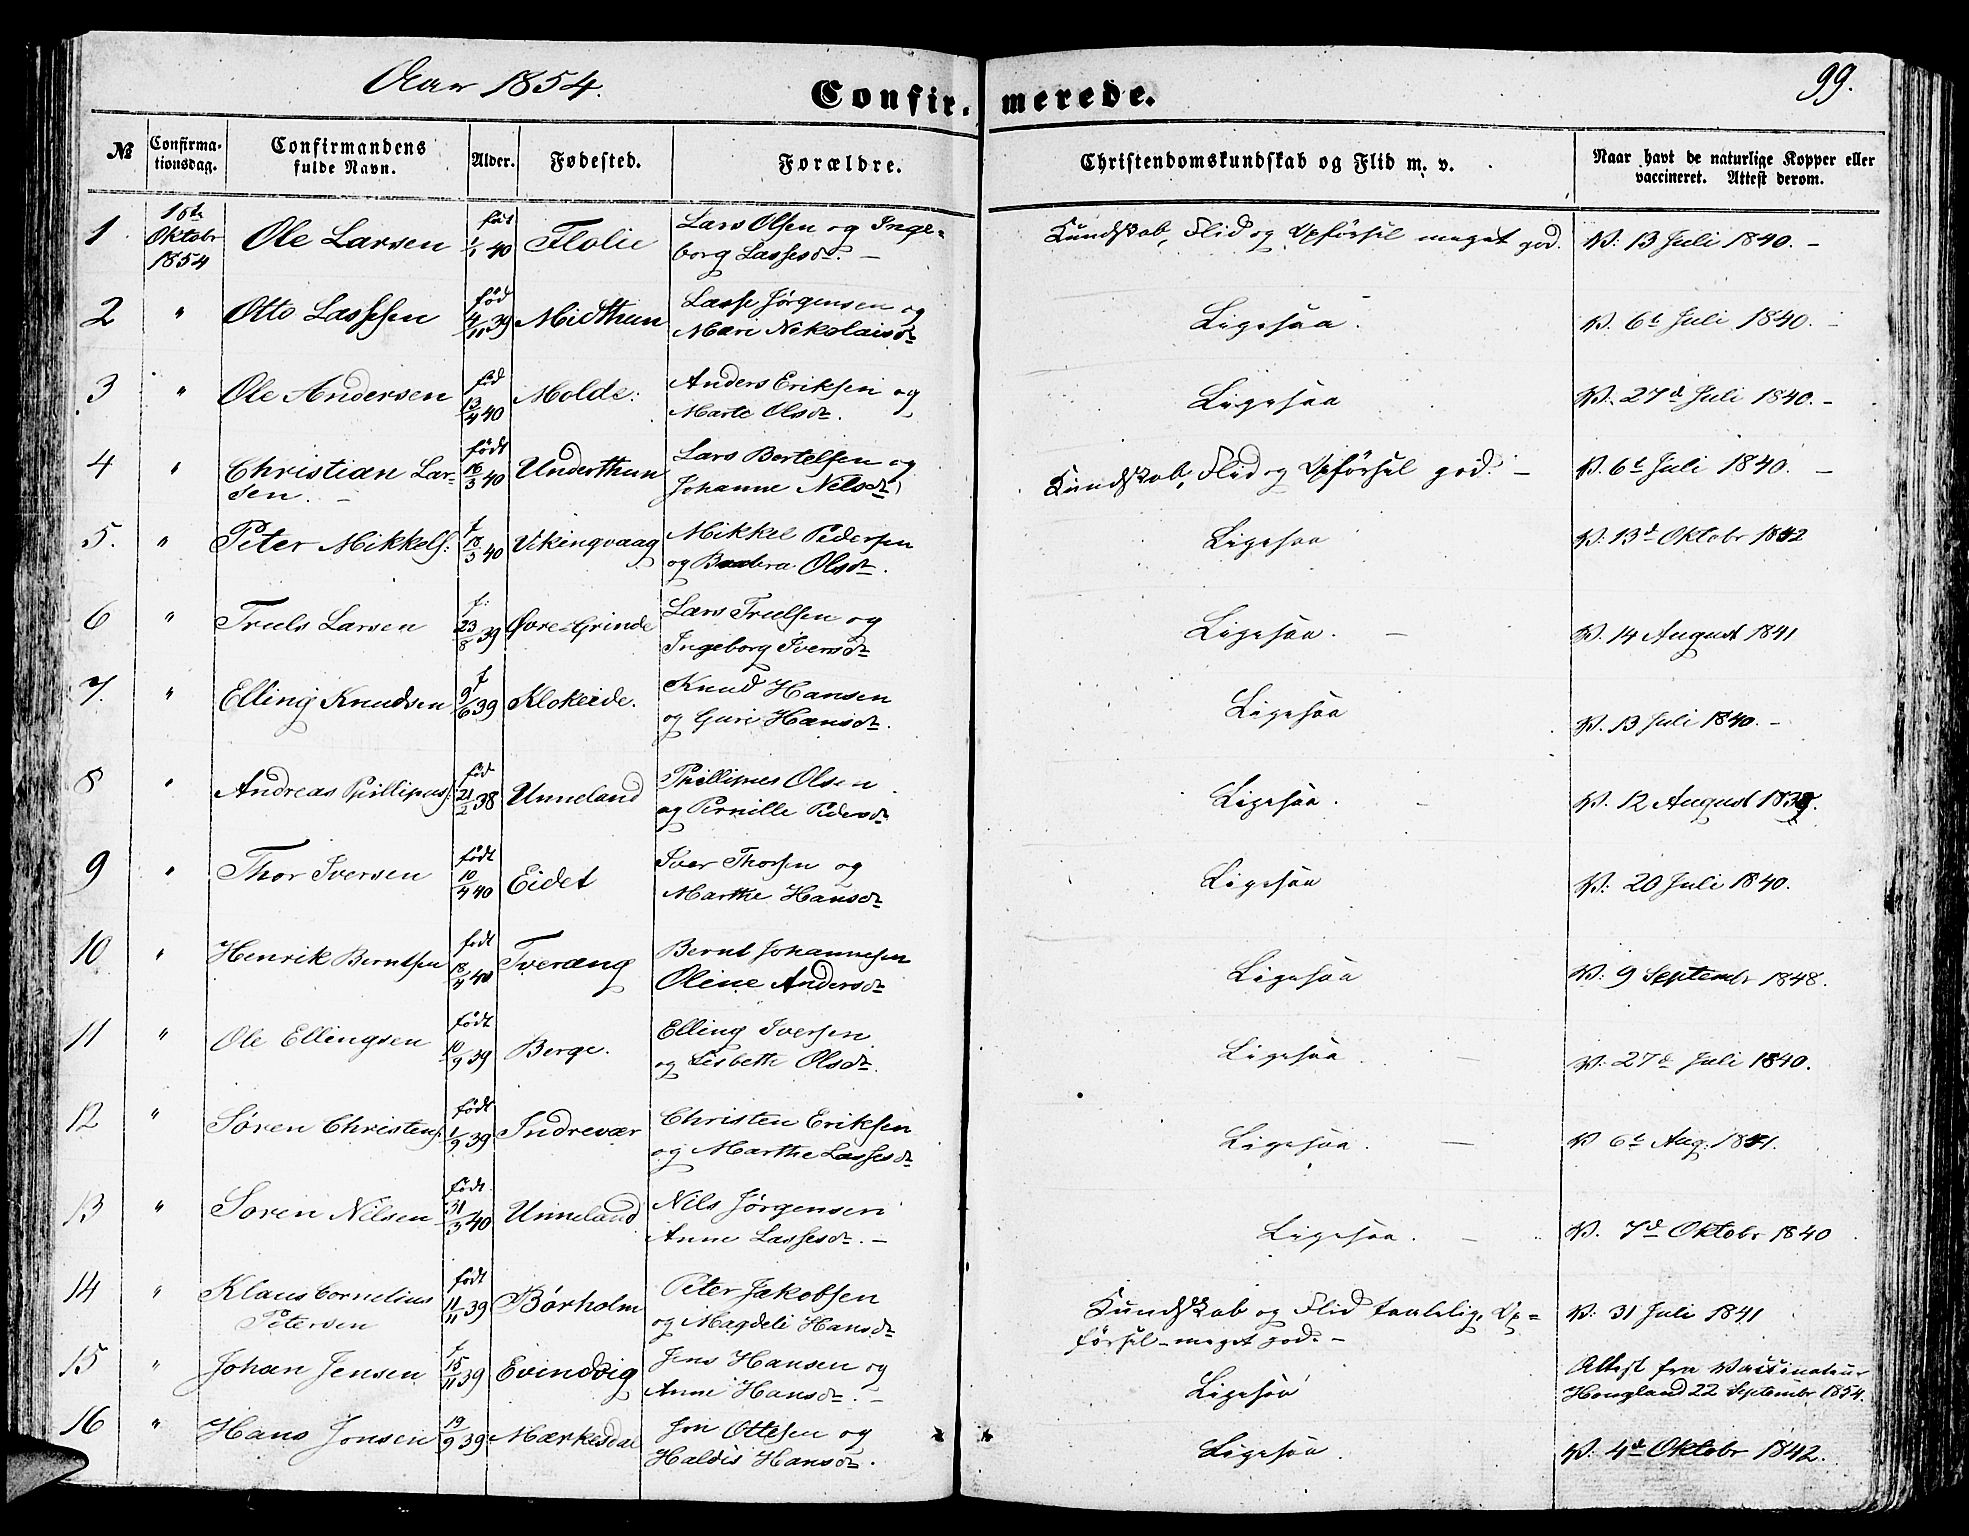 Aar 1854.
Confir- merede.
99.
№ Confirma-tionsdag. Confirmandens fulde Navn. Alder. Fødested. Forældre. Christendomskundskab og Flid m. v. Naar havt de naturlige Kopper eller vaccineret. Attest derom.
1 1ste Oktobr 1854 Ole Larsen født 40 Flolie Lars Olsen og Inge-
borg Lassesdr. – Kundskab, Flid og Opførsel meget god. V: 13 Juli 1840. –
2 " Otto Lassesen død 4/11 39 Midtthun Lasse Jørgensen og
Mari Nikolaisdr Ligesaa. V. 6t Juli 1840. –
3 " Ole Andersen fød 13/4 40 Molde: Anders Eriksen og
Marte Olsdr. Ligesaa V. 27d Juli 1840. –
4 " Christian Lar-
sen. – født 16/3 40 Underthun Lars Bertelsen og
Johanne Nelsdr Kundskab, Flid og Opførsel god. – V. 6t Juli 1840. –
5. " Peter Mikkels: f 18/3 40 Vikingvaag Mikkel Pedersen
og Barbra Olsdr. Ligesaa V. 13d Oktobr 1842
6 " Truls Larsen f: 23/8 39 Øvre-Grinde Lars Trulsen og
Ingeborg Iversdr Ligesaa. – V. 14 August 1841
7. " Elling Knudsen f 9/6 39 Klokeide. Knud Hansen
og Guri Hansdr. Ligesaa V. 13 Juli 1840. –
8 " Andreas Phillipus: fød 21/2 38 Unneland Phillipus Olsen
og Pernille Pedersdr Ligesaa. V. 12 August 1839.
9 " Thor Iversen født 10/4 40 Eidet Iver Thorsen og
Marthe Hansdr Ligesaa V: 20 Juli 1840.
10 " Henrik Berntsen født 18/4 40 Tveræng Bernt Johannesen
Oline Andersdr Ligesaa V: 9 Septembr 1848.
11 " Ole Ellingsen født 10/9 39 Berge. Elling Iversen
og Lisbeth Olsdr. Ligesaa. – V: 27d Juli 1840.
12 " Søren Christens: født 1/9 39 Indrevær Christen Eriksen
og Marthe Lassesdr Ligesaa. – V 6t Aug: 1841.
13 " Søren Nilsen født 31/3 40 Unneland Nils Jørgensen
Anne Lassesdr. – Ligesaa. – V. 7d Oktobr 1840
14 " Klaus Cornelius
Petersen født 11/11 39 Børholm Peter Jakobsen
og Magdeli Hansdr Kundskab og Flid taalelig, Op=
førsel meget god. – V: 31 Juli 1841
15 " Johan Jensen f 15/11 39 Evindvig Jens Hansen og
Anne Hansdr. – Ligesaa Attest fra Vaccinateur
Hougland 22 Septembr 1854.
16 " Hans Jonsen 19/9 39 Mærkesdal Jon Ottesen og
Haldis Hansdr. Ligesaa. V. 4d Oktobr 1842.